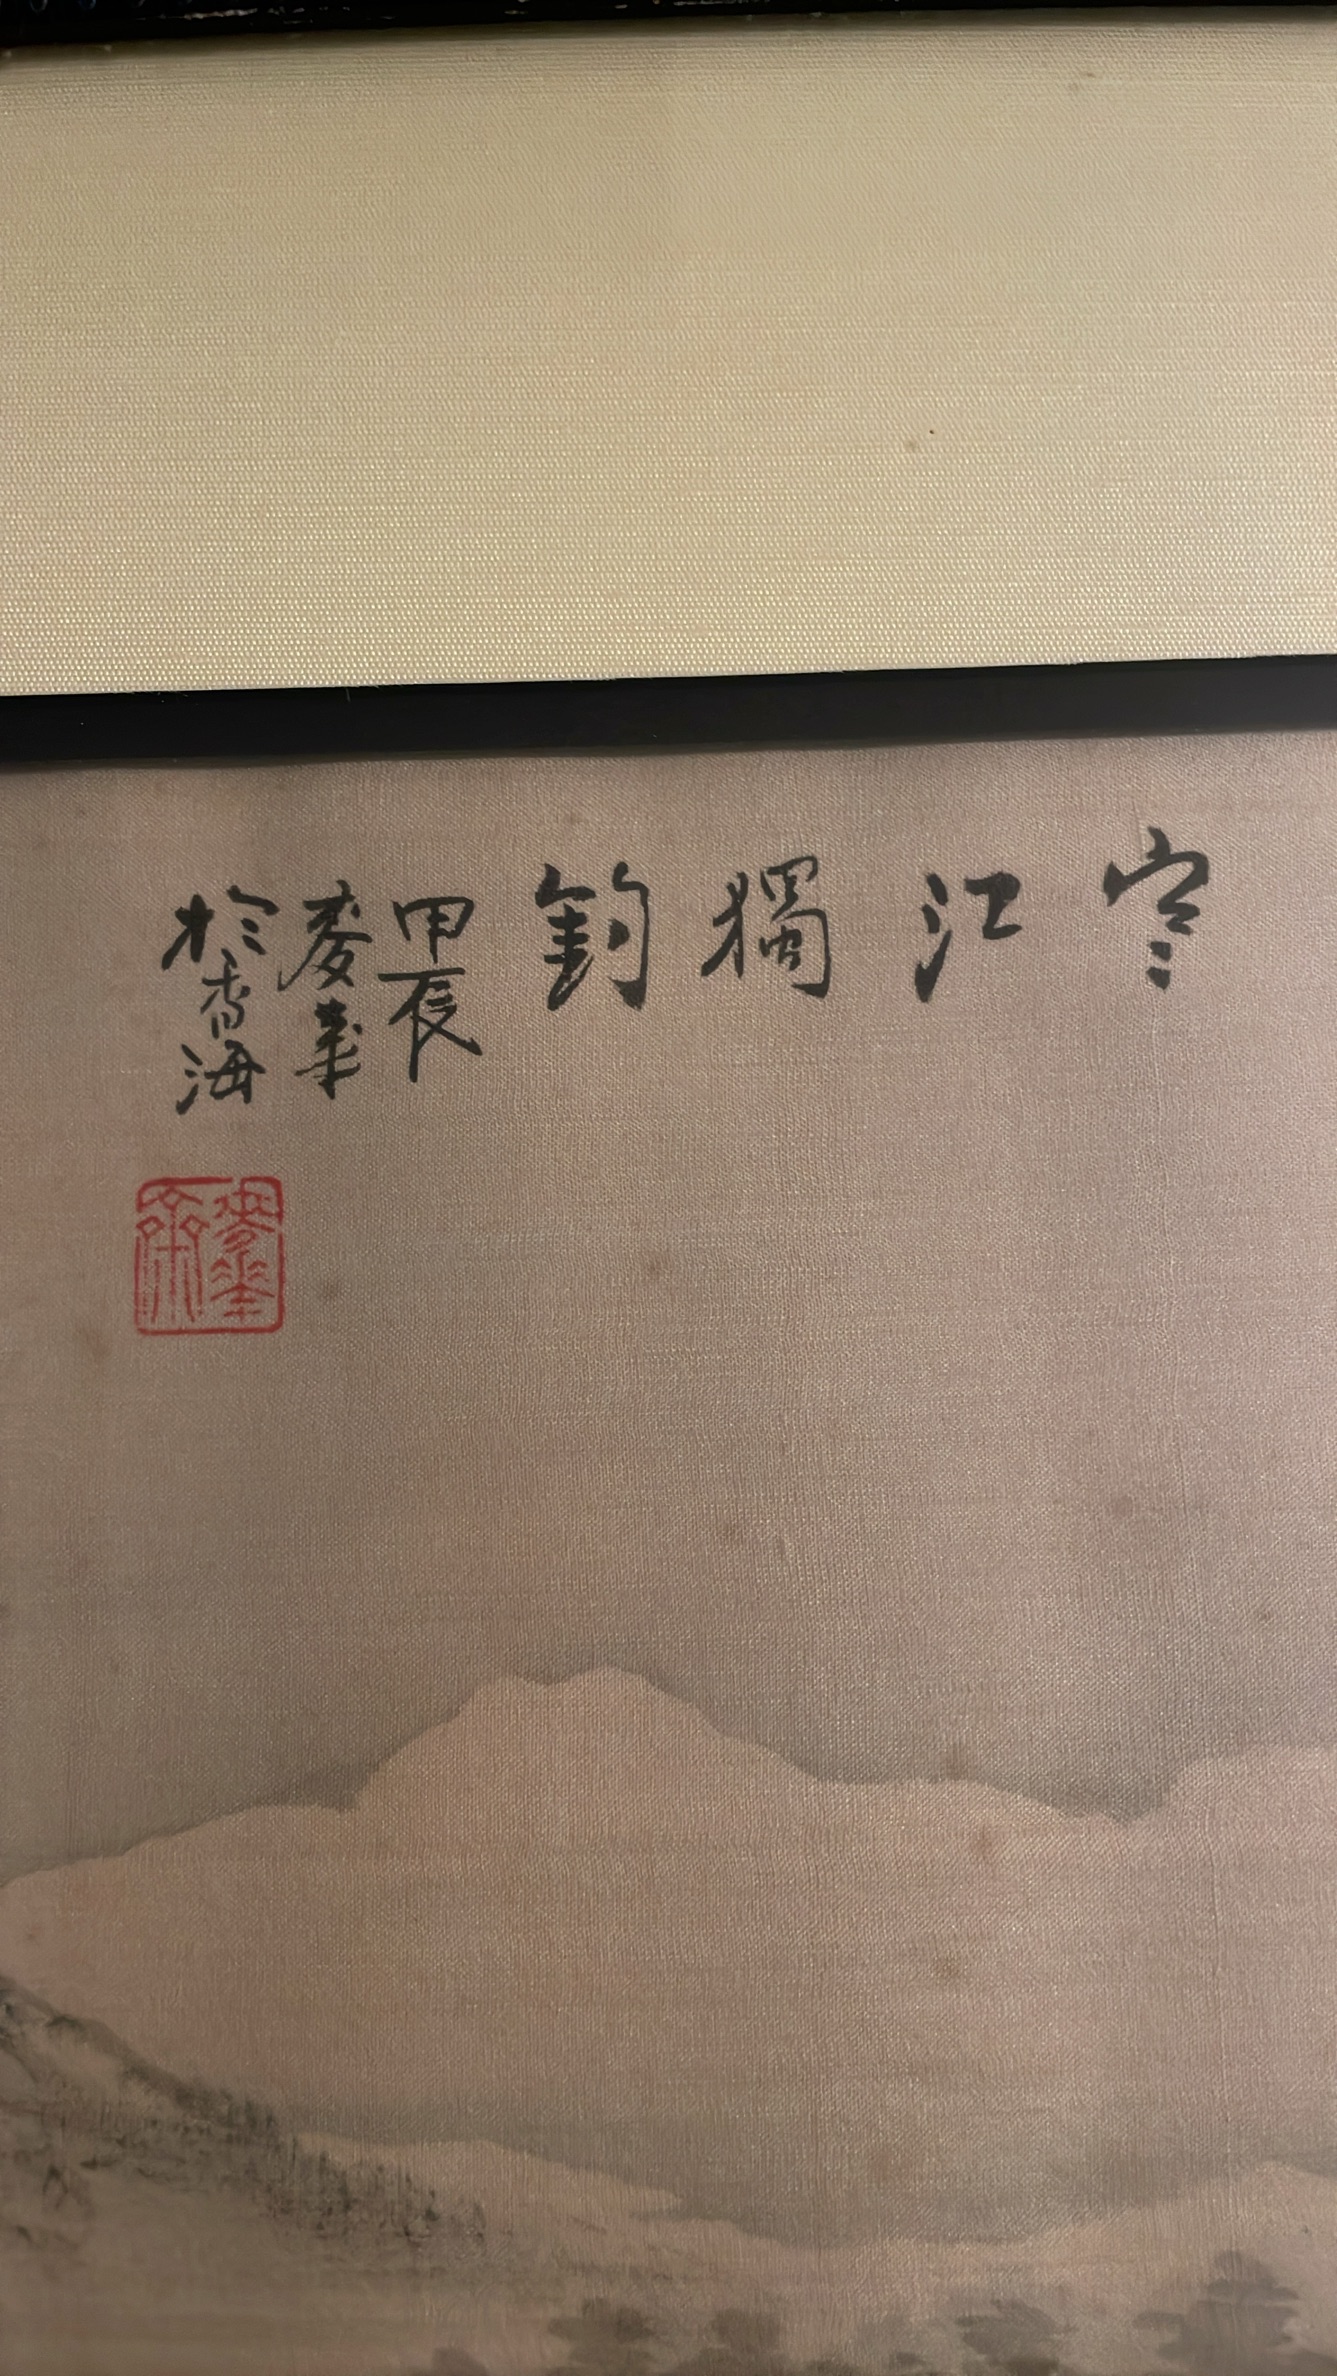 寒江獨釣
甲辰
麥華
於香海
麥華